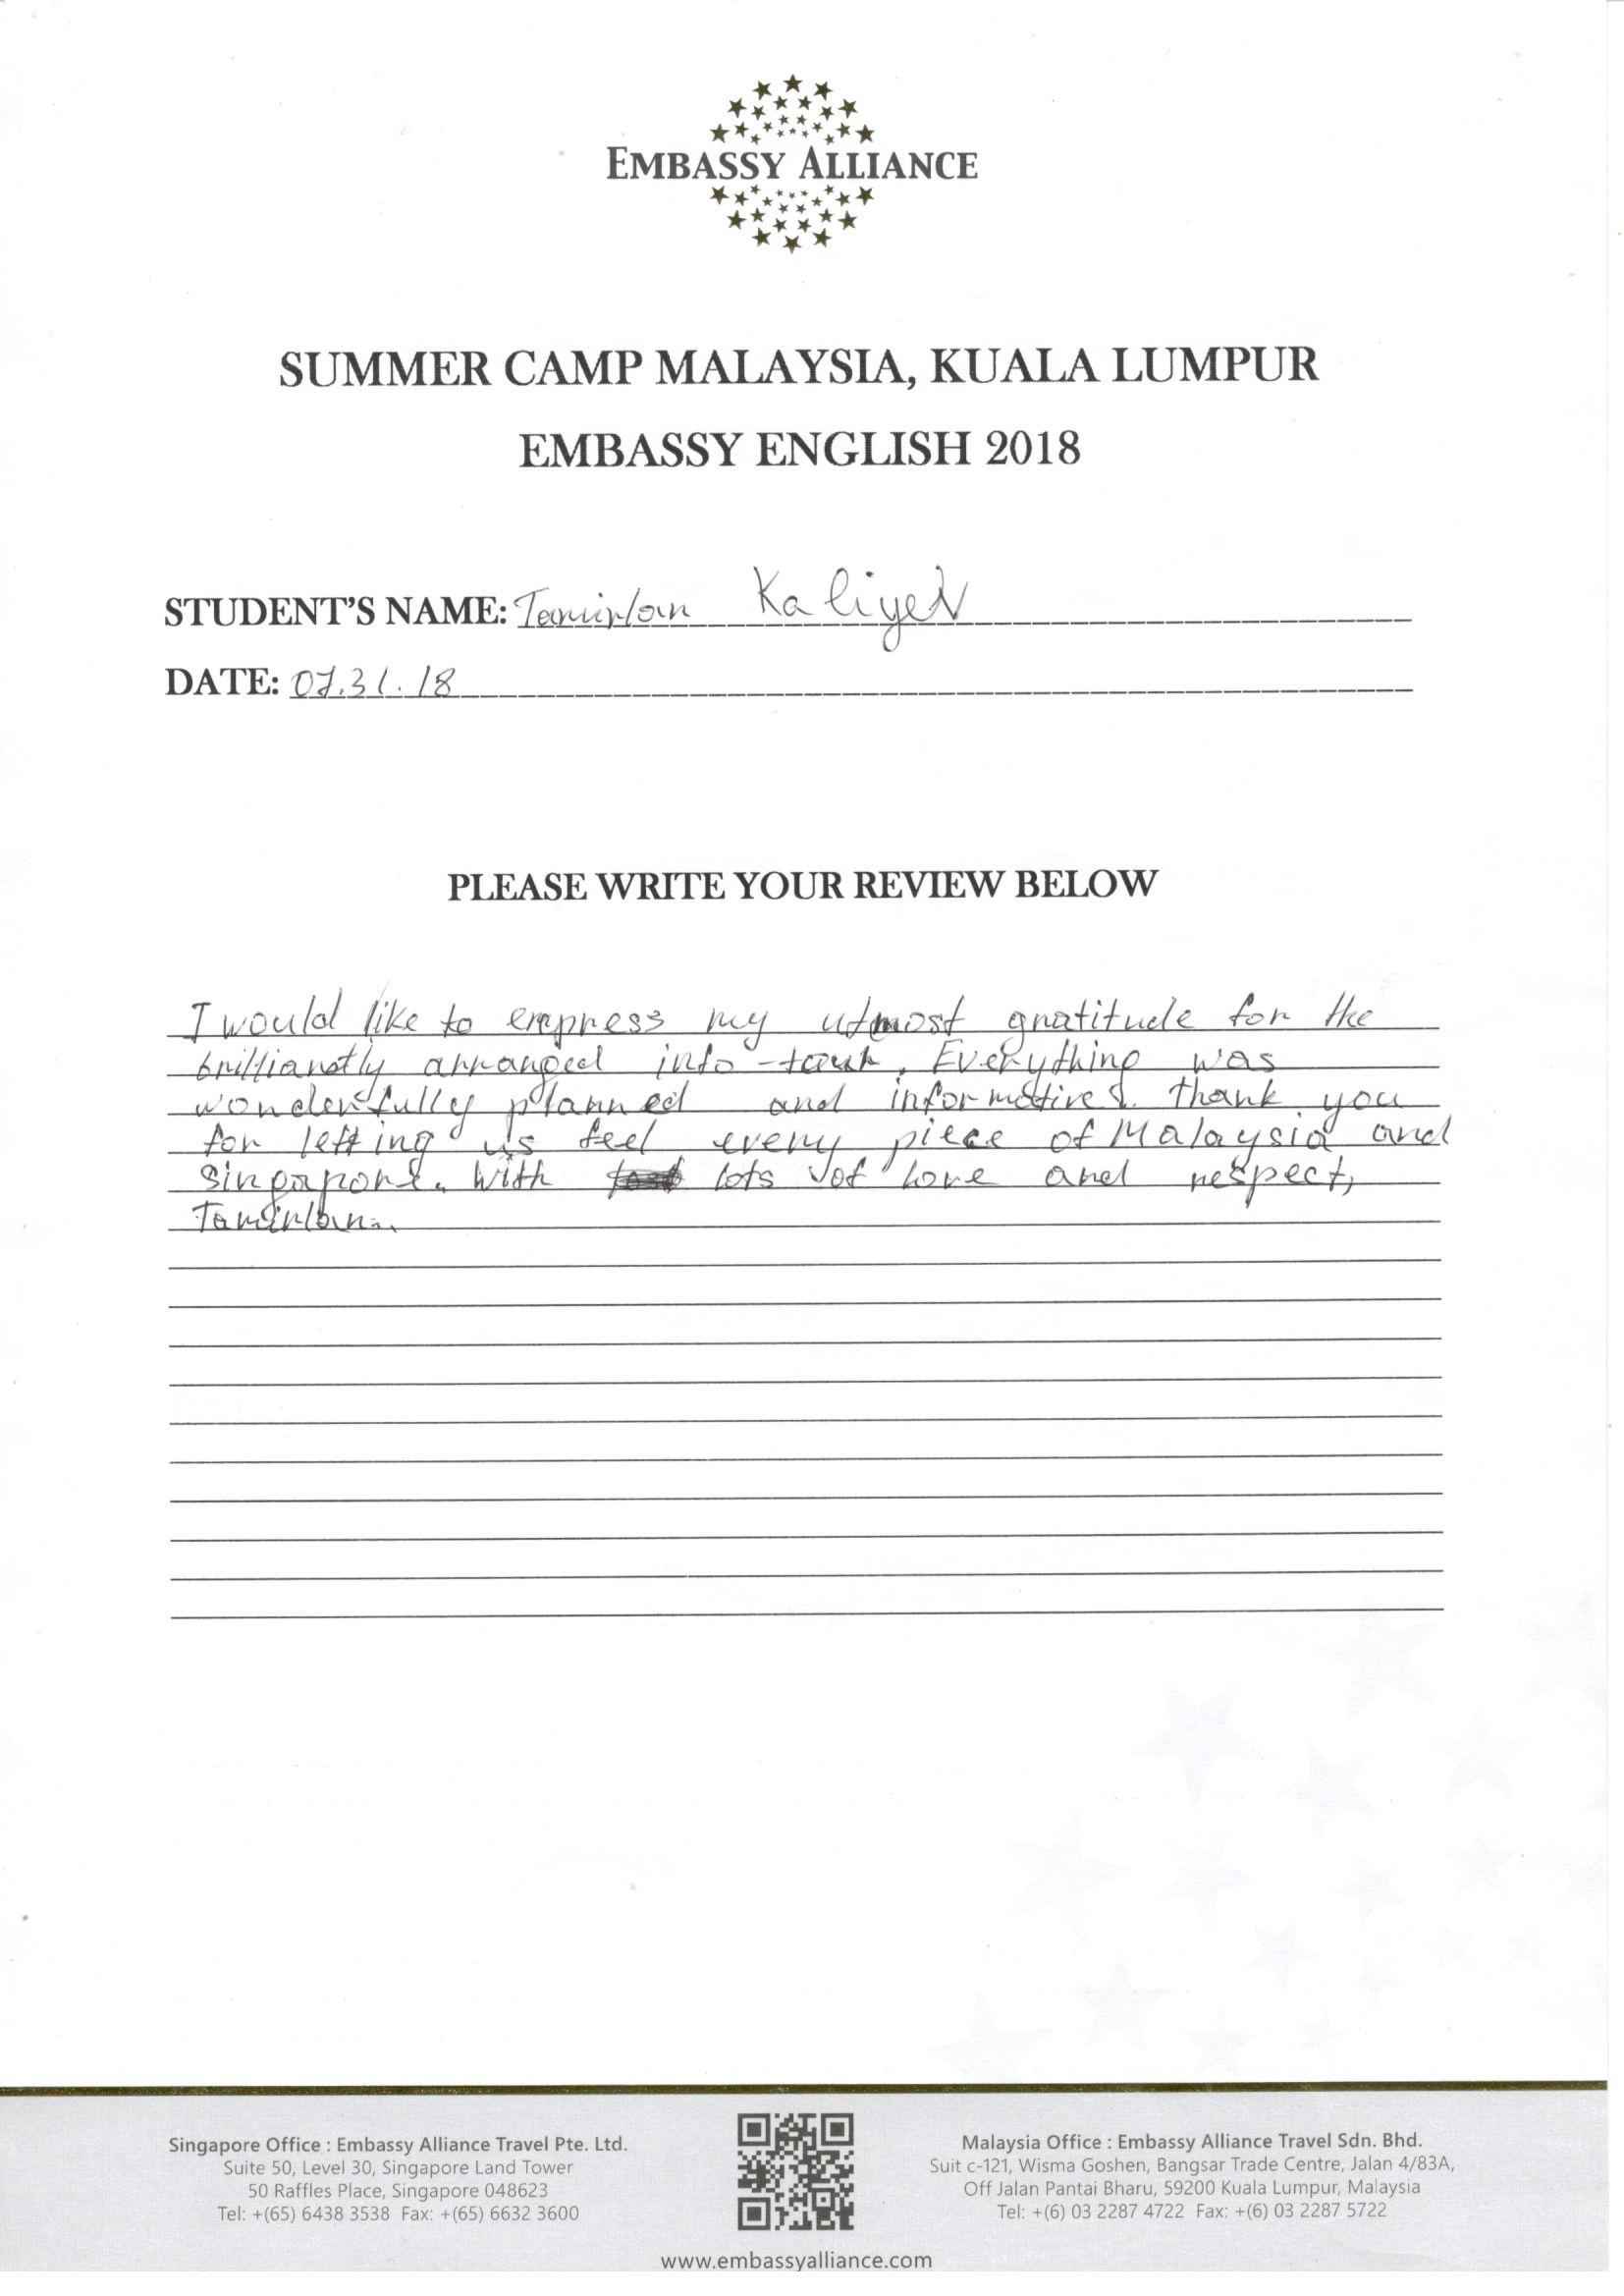 EMBASSY ALLIANCE
SUMMER CAMP MALAYSIA, KUALA LUMPUR
EMBASSY ENGLISH 2018
STUDENT'S NAME: Tamirlan Kaliyev
DATE: 07.31.18
PLEASE WRITE YOUR REVIEW BELOW
I would like to express my utmost gratitude for the
brilliantly arranged info-tour. Everything was
wonderfully planned and informative. Thank you
for letting us feel every piece of Malaysia and
Singapore. With lots of love and respect,
Tamirlan.
Singapore Office : Embassy Alliance Travel Pte. Ltd.
Suite 50, Level 30, Singapore Land Tower
50 Raffles Place, Singapore 048623
Tel: +(65) 6438 3538 Fax: +(65) 6632 3600
Malaysia Office : Embassy Alliance Travel Sdn. Bhd.
Suit c-121, Wisma Goshen, Bangsar Trade Centre, Jalan 4/83A,
Off Jalan Pantai Bharu, 59200 Kuala Lumpur, Malaysia
Tel: +(6) 03 2287 4722 Fax: +(6) 03 2287 5722
www.embassyalliance.com